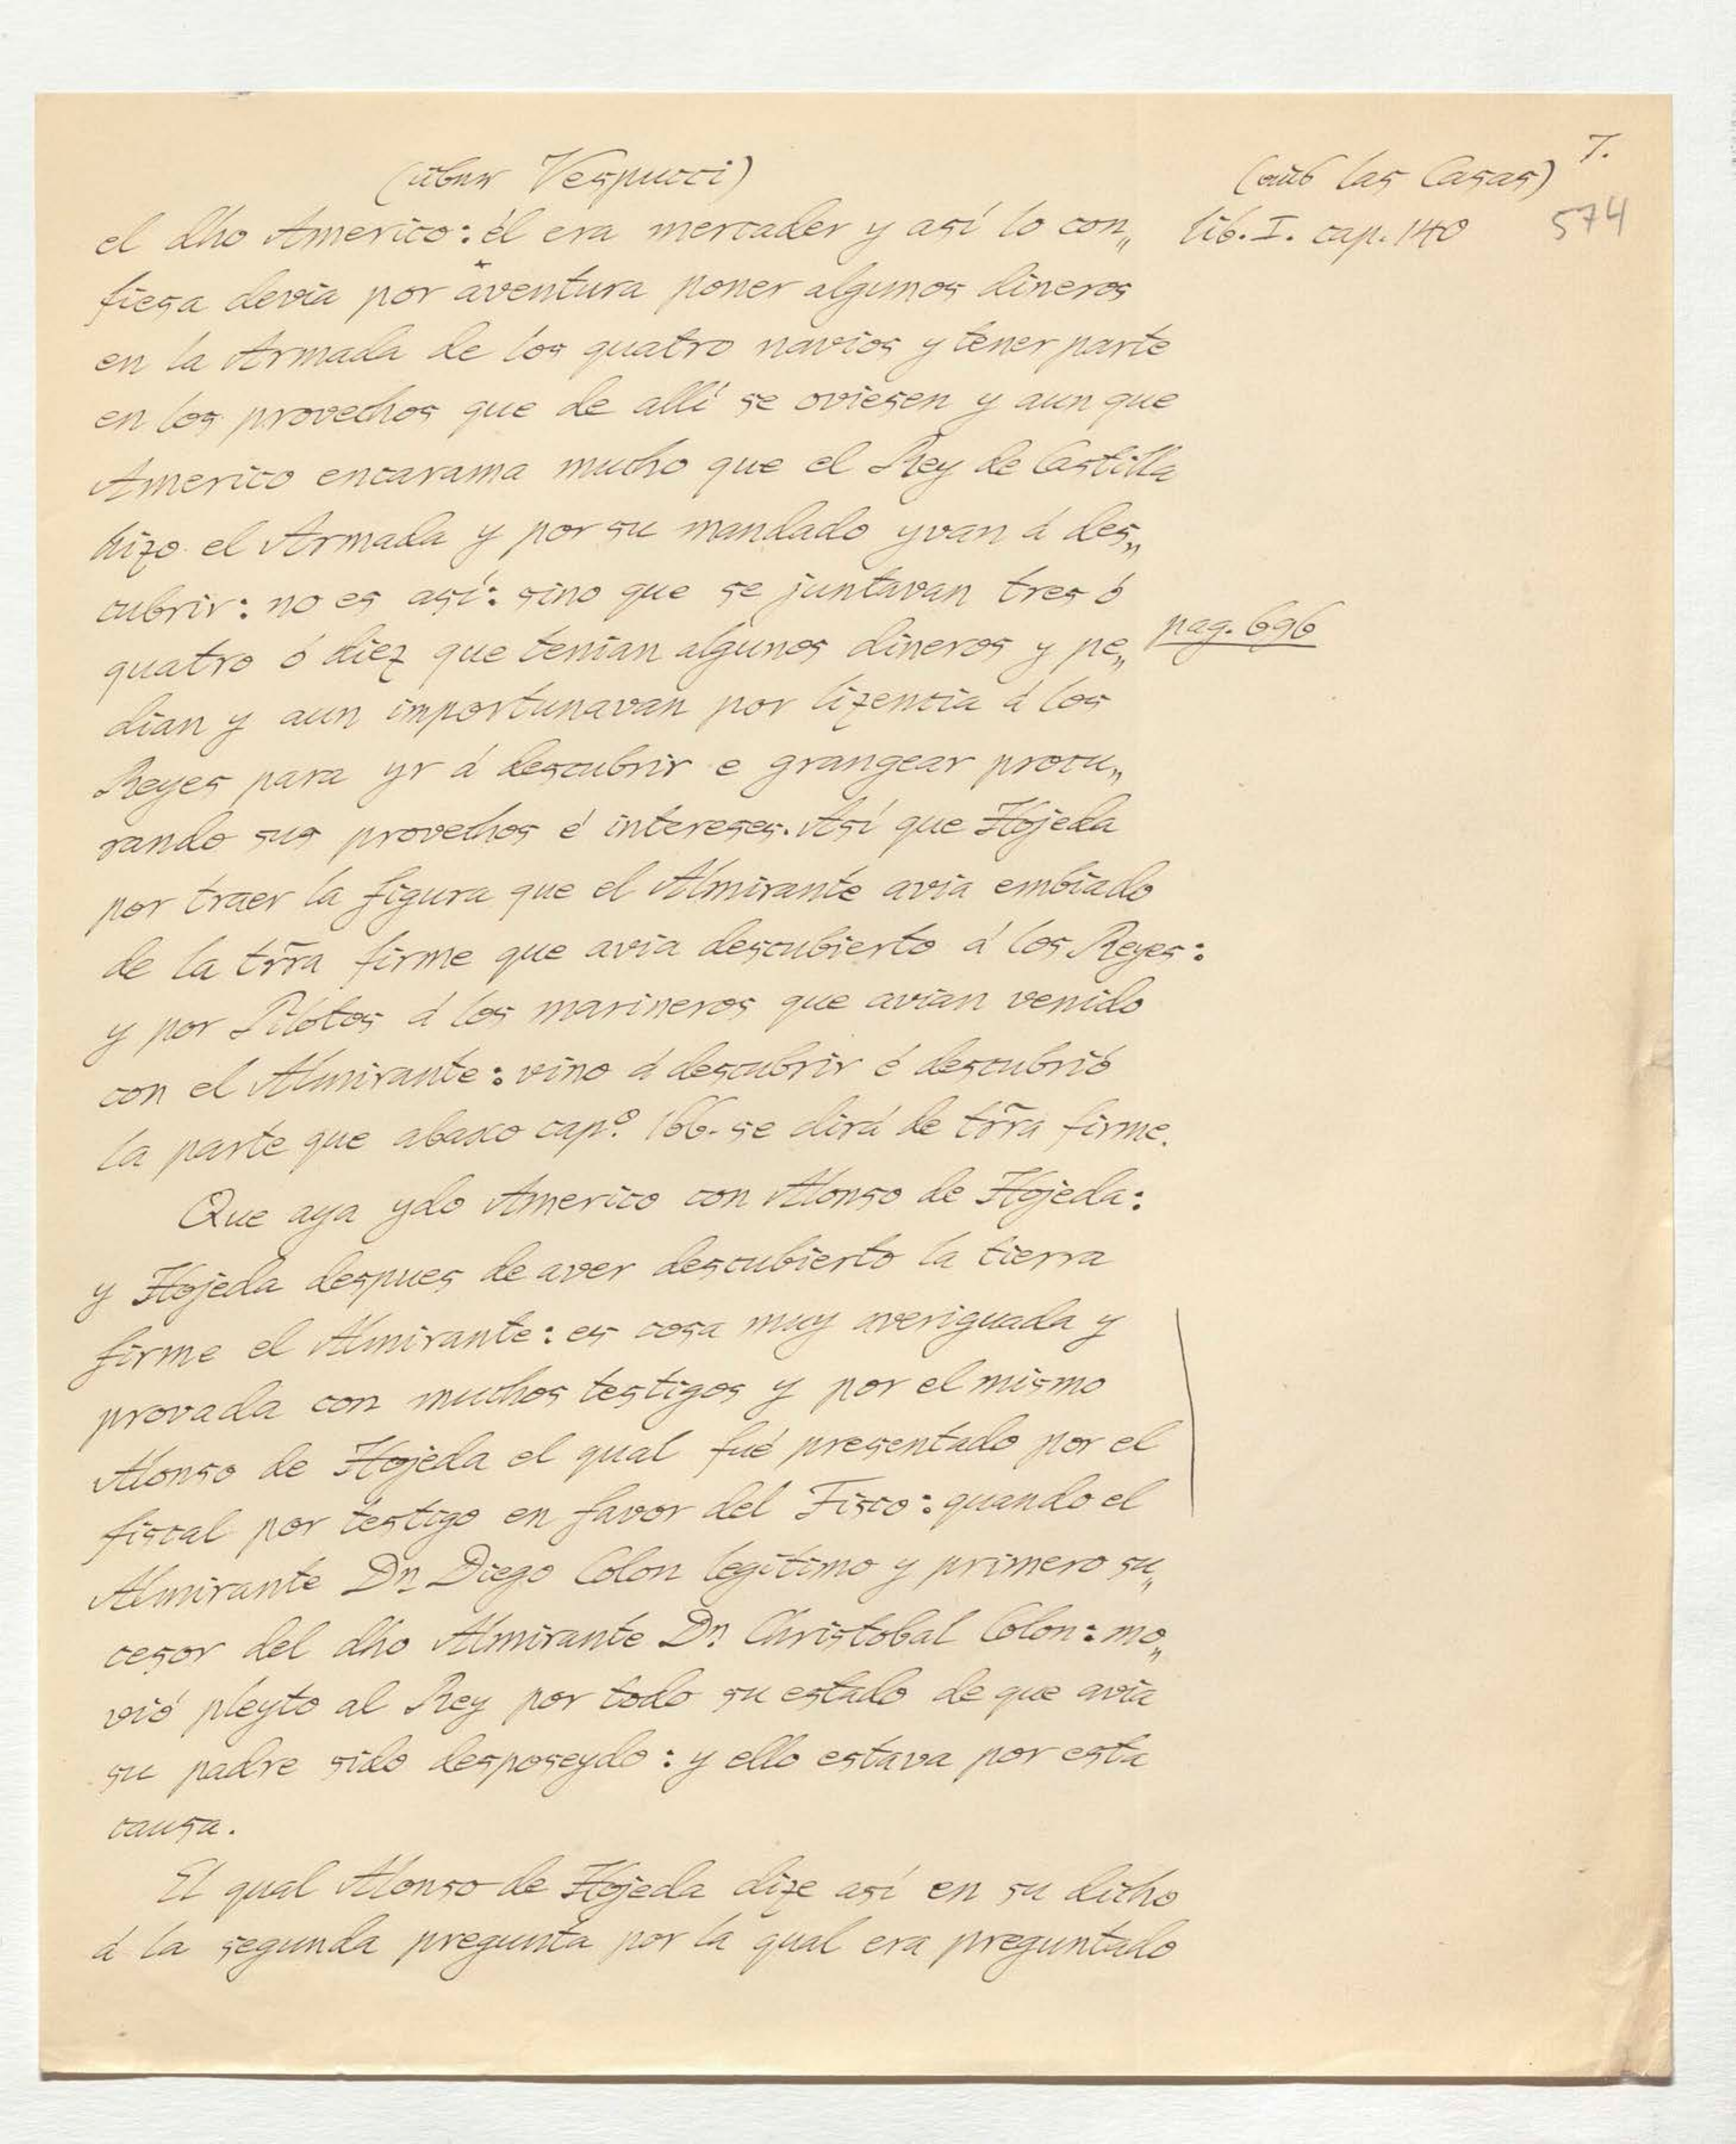 7.
(über Vespucci) (aus las Casas)
574
el dho Americo: él era mercader y así lo con„ lib. I. cap. 140
fiesa devia por aventura poner algunos dineros
en la Armada de los quatro navios y tener parte
en los provechos que de allí se oviesen y aun que
Americo encarama mucho que el Rey de Castilla
hizo el Armada y por su mandado yvan á des„
cubrir: no es así: sino que se juntavan tres ó
quatro ó diez que tenian algunos dineros y pe„ pag. 696
dian y aun importunavan por lizencia á los
Reyes para yr á descubrir e grangear procu„
rando sus provechos é intereses. Así que Hojeda
por traer la figura que el Almirante avia embiado
de la trr̃a firme que avia descubierto á los Reyes:
y por Pilotos á los marineros que avian venido
con el Almirante: vino á descubrir é descubrió
la parte que abaxo cap.º 166. se dirá de trr̃a firme.
Que aya ydo Americo con Alonso de Hojeda:
y Hojeda despues de aver descubierto la tierra
firme el Almirante: es cosa muy averiguada y
provada con muchos testigos y por el mismo
Alonso de Hojeda el qual fué presentado por el
fiscal por testigo en favor del Fisco: quando el
Almirante Dn Diego Colon legítimo y primero su„
cesor del dho Almirante Dn Christobal Colon: mo„
vió pleyto al Rey por todo su estado de que avia
su padre sido desposeydo: y ello estava por esta
causa.
El qual Alonso de Hojeda dize así en su dicho
á la segunda pregunta por la qual era preguntado